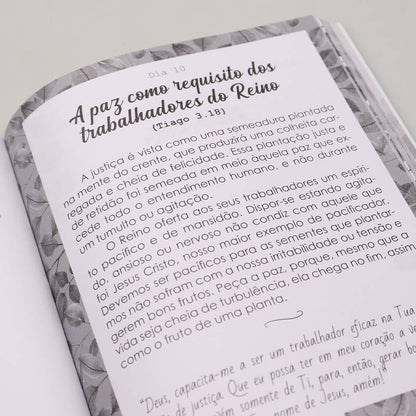 Dia 10
A paz como requisito dos
trabalhadores do Reino
(Tiago 3.18)
A justiça é vista como uma semeadura plantada
na mente do crente, que produzirá uma colheita car-
regada e cheia de felicidade. Essa plantação justa e
de retidão foi semeada em meio àquela paz que ex-
cede todo o entendimento humano, e não durante
um tumulto ou agitação.
O Reino oferta aos seus trabalhadores um espíri-
to pacífico e de mansidão. Dispor-se estando agita-
do, ansioso ou nervoso não condiz com aquele que
foi Jesus Cristo, nosso maior exemplo de pacificador.
Devemos ser pacíficos para as sementes que plantar-
mos não sofram com a nossa irritabilidade ou tensão e
gerem bons frutos. Peça a paz, porque, mesmo que a
vida seja cheia de turbulência, ela chega no fim, assim
como o fruto de uma planta.
"Deus, capacita-me a ser um trabalhador eficaz na Tua
de justiça. Que eu possa ter em meu coração a
somente de Ti, para, então, gerar
nome de Jesus, amém!"